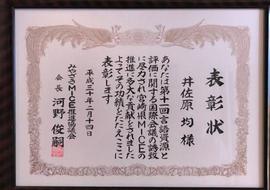 表彰状
井佐原 均様
あなたは第十一回言語資源と
評価に関する国際会議の誘致
に尽力され宮崎県MICEの
推進に多大な貢献をされました
よってその功績をたたえここに
表彰します
平成三十年二月十四日
みやざきMICE推進協議会
会長 河野俊嗣